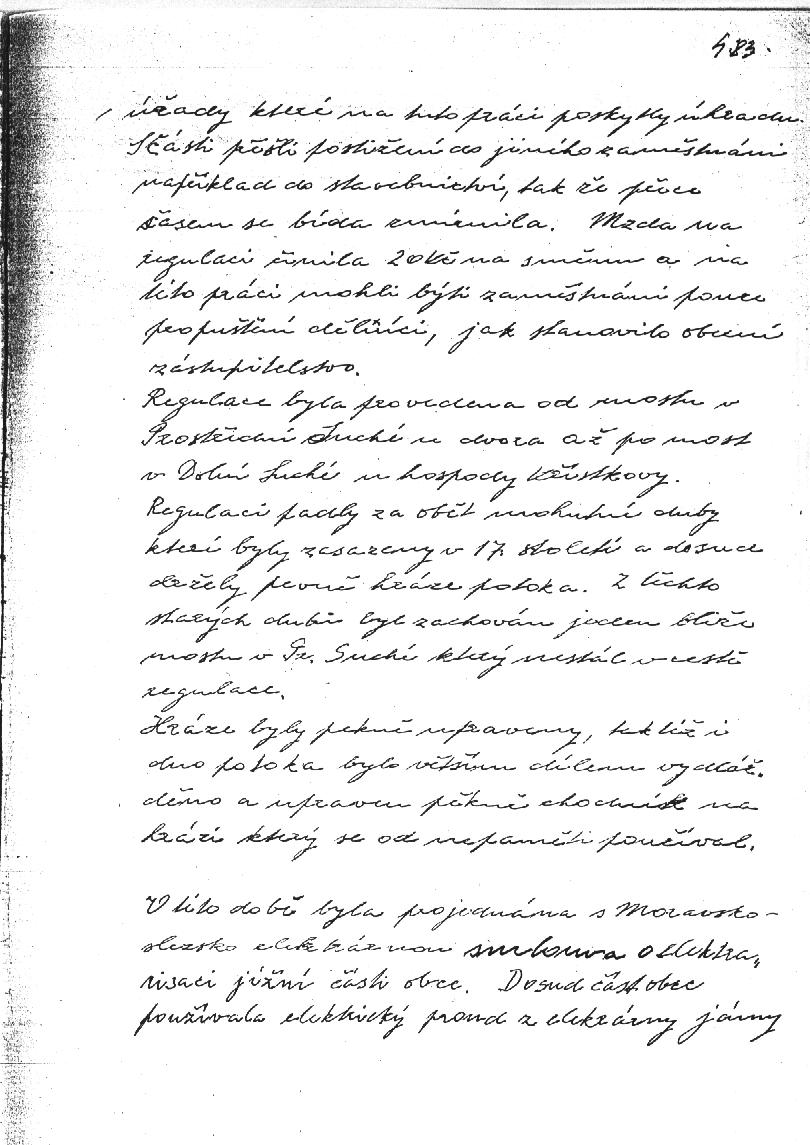 483.
úřady které na tuto práci poskytly úhradu.
Sčásti přešli postižení do jiného zaměstnání
například do stavebnictví, tak že přece
časem se bída zmírnila. Mzda na
regulaci činila 20 Kč na směnu a na
této práci mohli býti zaměstnáni pouze
propuštění dělníci, jak stanovilo obecní
zástupitelstvo.
Regulace byla provedena od mostu v
Prostřední Suché u dvora až po most
v Dolní Suché u hospody Křístkovy.
Regulaci padly za oběť mohutné duby
které byly zasazeny v 17. století a dosud
držely pevně hráze potoka. Z těchto
starých dubů byl zachován jeden blíže
mostu v Pr. Suché který nestál v cestě
regulace.
Hráze byly pěkně upraveny, taktéž i
dno potoka bylo větším dílem vydláž-
děno a upraven pěkně chodník na
hrázi který se od nepaměti používal.
V této době byla projednána s Moravsko-
slezsko elektrárnou smlouva o elektra„
nisaci jížní části obce. Dosud část obce
používala elektrický proud z elekrárny jámy